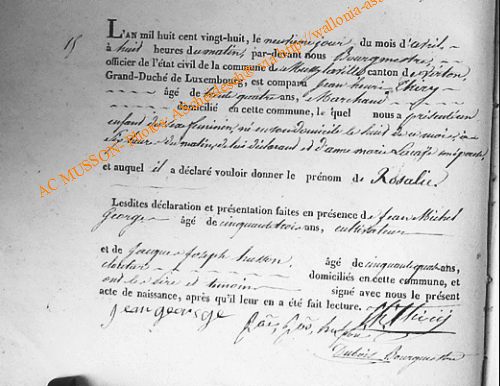 15
L'AN mil huit cent vingt-huit, le neuvième jour du mois d'avril
à huit heures du matin, par-devant nous Bourgmestre,
officier de l'état civil de la commune de Mussy-la-ville canton de Virton,
Grand-Duché de Luxembourg, est comparu Jean henri Thiry
âgé de trente quatre ans, Marchand
domicilié en cette commune, lequel nous a présenté un
enfant du sexe féminin, né en son domicile le huit de ce mois, à
heures du matin, de lui déclarant et d'anne marie
et auquel il a déclaré vouloir donner le prénom de Rosalie.
Lesdites déclaration et présentation faites en présence de Jean Michel
George âgé de cinquante trois ans, cultivateur
et de Jacques Joseph husson, âgé de cinquante quatre ans,
domiciliés en cette commune, et
ont les père et témoins signé avec nous le présent
acte de naissance, après qu'il leur en a été fait lecture.
jean george
husson
Thiry
Bourgmestre
AC MUSSON
http://wallonia-as